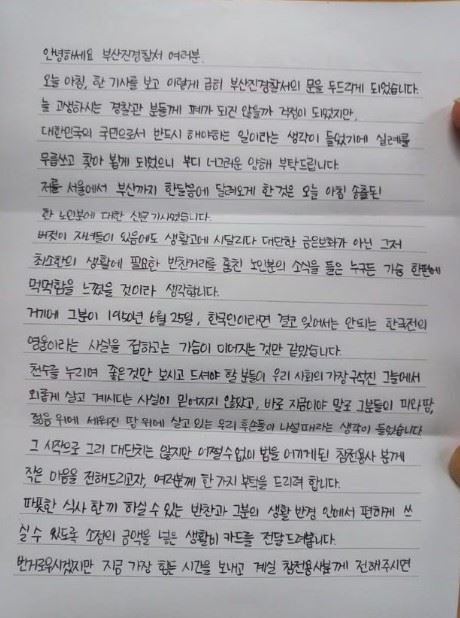 안녕하세요 부산진경찰서 여러분.
오늘 아침, 한 기사를 보고 이렇게 급히 부산진경찰서의 문을 두드리게 되었습니다.
늘 고생하시는 경찰관 분들께 폐가 되진 않을까 걱정이 되었지만,
대한민국의 국민으로서 반드시 해야하는 일이라는 생각이 들었기에 실례를
무릅쓰고 찾아 뵙게 되었으니 부디 너그러운 양해 부탁드립니다.
저를 서울에서 부산까지 한달음에 달려오게 한 것은 오늘 아침 송출된
한 노인분에 대한 신문기사였습니다.
버젓이 자녀들이 있음에도 생활고에 시달리다 대단한 금은보화가 아닌 그저
최소한의 생활에 필요한 반찬거리를 훔친 노인분의 소식을 들은 누구든 가슴 한편에
먹먹함을 느꼈을 것이라 생각합니다.
거기에 그분이 1950년 6월 25일, 한국인이라면 결코 잊어서는 안되는 한국전의
영웅이라는 사실을 접하고는 가슴이 미어지는 것만 같았습니다.
천수를 누리며 좋은것만 보시고 드셔야 할 분들이 우리 사회의 가장 구석진 그늘에서
외롭게 살고 계시다는 사실이 믿어지지 않았고, 바로 지금이야 말로 그분들이 피와 땀,
젊음 위에 세워진 땅 위에 살고 있는 우리 후손들이 나설 때라는 생각이 들었습니다
그 시작으로 그리 대단치는 않지만 어쩔 수 없이 법을 어기게 된 참전용사 분께
작은 마음을 전해드리고자, 여러분께 한 가지 부탁을 드리려 합니다.
따뜻한 식사 한 끼 하실 수 있는 반찬과 그분의 생활 반경 안에서 편하게 쓰
실 수 있도록 소정의 금액을 넣은 생활비 카드를 전달 드려봅니다.
번거로우시겠지만 지금 가장 힘든 시간을 보내고 계실 참전용사분께 전해주시면